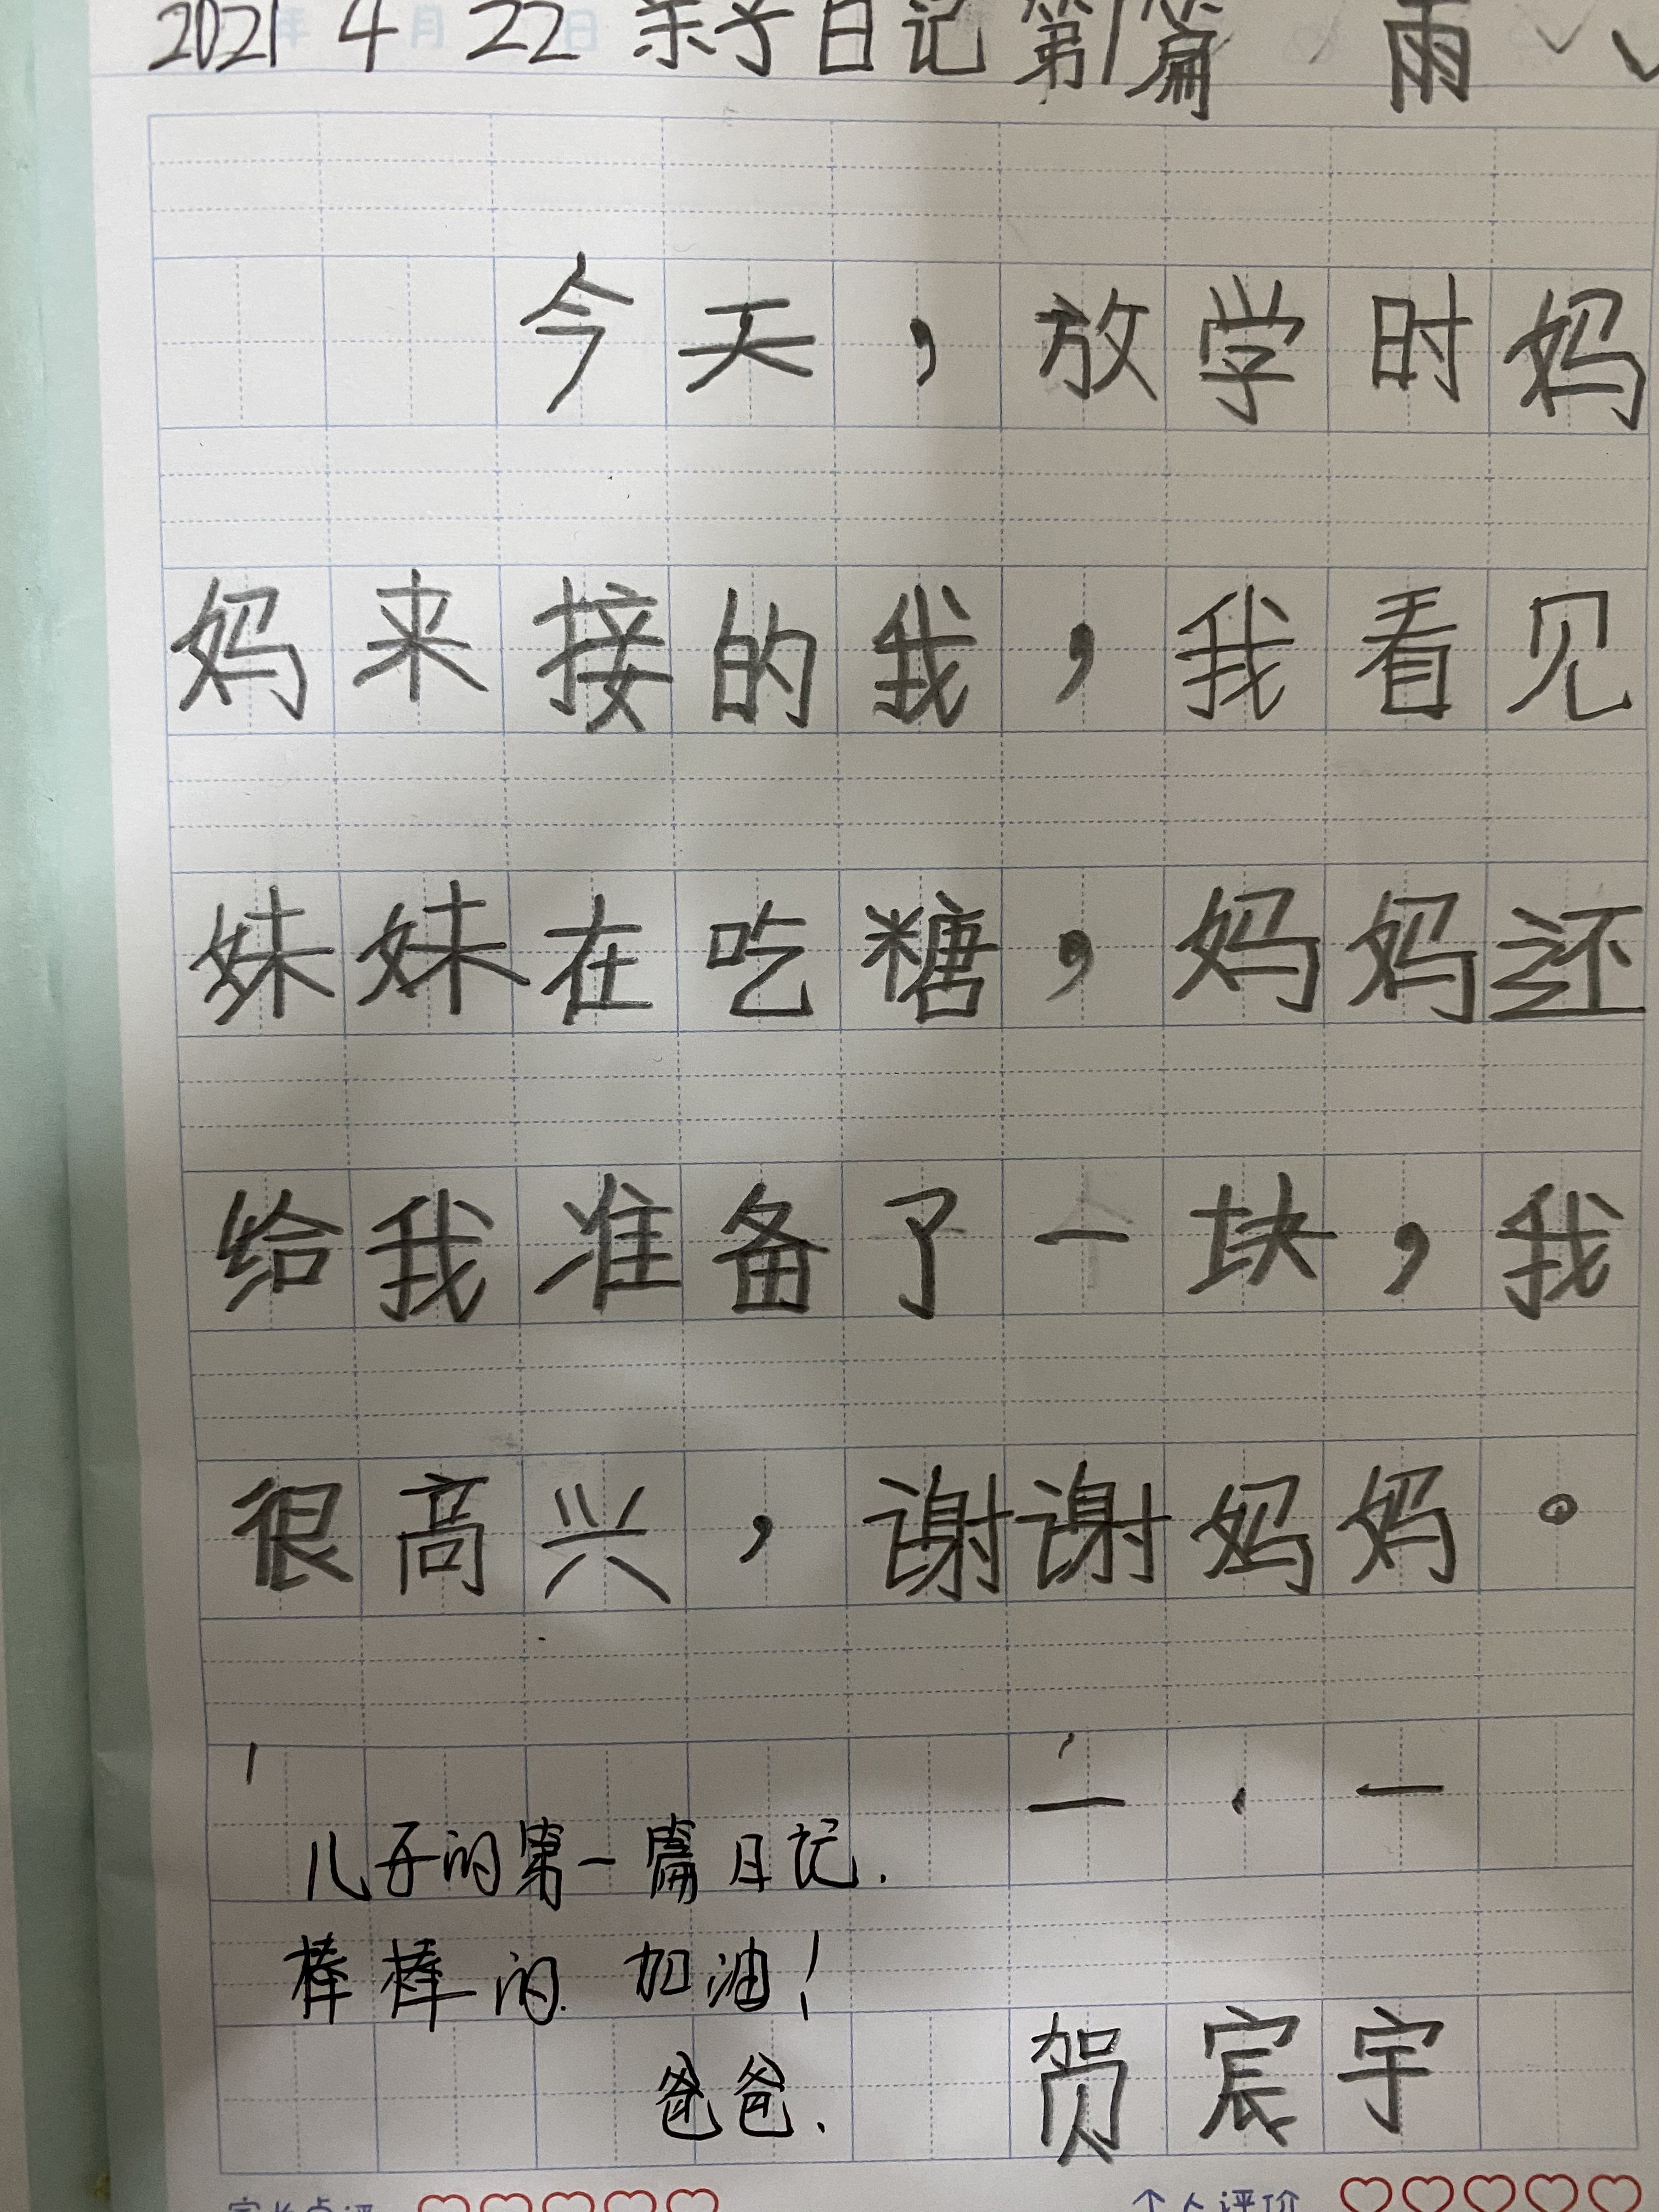 2021年4月22日 亲子日记 第1篇 雨
今天，放学时妈
妈来接的我，我看见
妹妹在吃糖，妈妈还
给我准备了一块，我
很高兴，谢谢妈妈。
儿子的第一篇日记.
棒棒的. 加油！
爸爸.
贺宸宇
个人评价